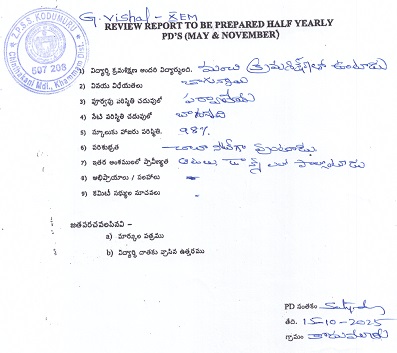 G. Vishal - XEM
REVIEW REPORT TO BE PREPARED HALF YEARLY
PD'S (MAY & NOVEMBER)
Z.P.S.S. KODUMURU
507 208
Chinthakani Mdl., Khammam Dist.
1) విద్యార్థి క్రమశిక్షణ అందరి విద్యార్థుంది. మంచి క్రమశిక్షణలో ఉంటాడు
2) వినయ విధేయతలు బాగున్నాయి
3) పూర్వపు పరిస్థితి చదువులో పర్వాలేదు
4) నేటి పరిస్థితి చదువులో బాగున్నది
5) స్కూలుకు హాజరు పరిస్థితి. 98%
6) పరిశుభ్రత చాలా నీట్‌గా వుంటాడు.
7) ఇతర అంశములలో ప్రావీణ్యత ఆటలు డాన్స్ లో పాల్గొంటాడు
8) అభిప్రాయాలు / సలహాలు
9) కమిటీ సభ్యుల సూచనలు
జతపరచవలసినవి -
a) మార్కుల పత్రము
b) విద్యార్థి దాతకు వ్రాసిన ఉత్తరము
PD సంతకం
తేది. 15-10-2025
గ్రామం కొదుమూరు